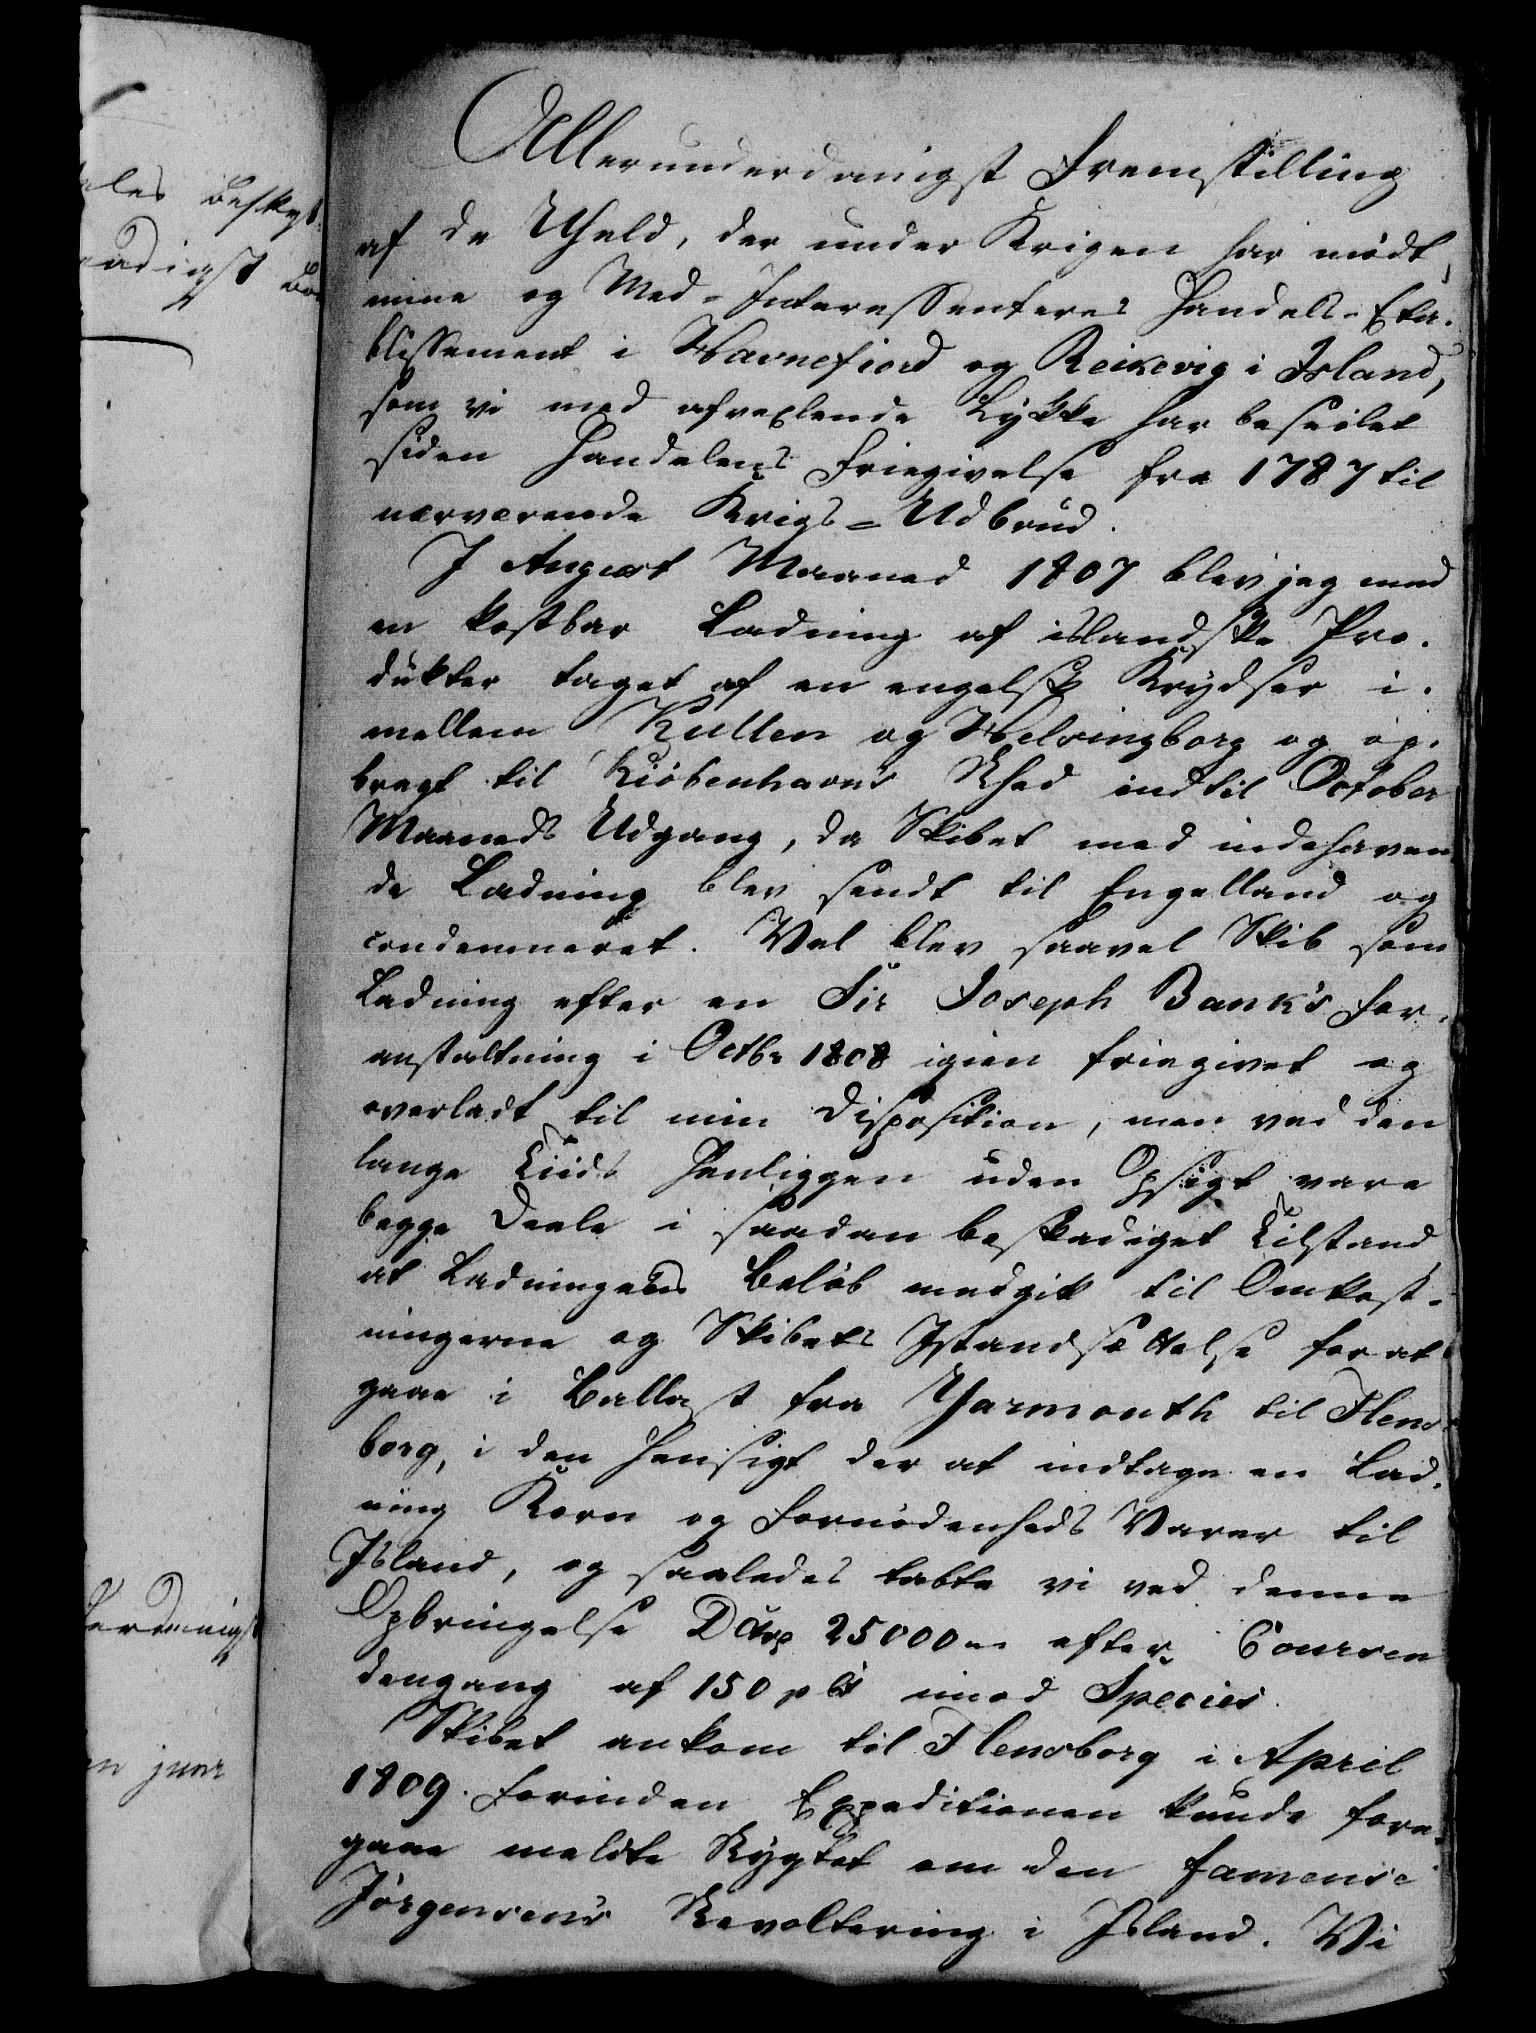 Allerunderdanigst Fremstilling
af de Uheld, der under Krigen har mødt
mine og Med-Interessenteres Handels-Eta-
blissement i Havnefiord og Reikevig i Island,
som vi med afvexlende Lykke har beseilet
siden Handelens Friegivelse fra 1787 til
nærværende Krigs-Udbrud.
I August Maaned 1807 blev jeg med
en kostbar Ladning af islandske Pro-
dukter taget af en engelsk Krydser i-
mellem Kullen og Helsingborg og op-
bragt til Kiöbenhavns Rhed indtil October
Maaneds Udgang, da Skibet med indehaven
de Ladning blev sendt til Engelland og
condemneret. Vel blev saavel Skib som
Ladning efter en Sir Joseph Bank's For-
anstaltning i Octbr 1808 igien friegivet og
overladt til min Disposition, men ved den
lange Tiids Henliggen uden Opsigt vare
begge Deele i saadan beskadiget Tilstand
at Ladningens Beløb medgik til Omkost-
ningerne og Skibets Istandsættelse for at
gaae i Ballast fra Yarmouth til Flens-
borg, i den Hensigt der at indtage en Lad-
ning Korn og Fornødenheds Varer til
Island, og saaledes tabte vi ved denne
Opbringelse D 25000 efter Coursen
dengang af 150 pCt imod Species.
Skibet ankom til Flensborg i April
1809. Forinden Expeditionen kunde fore-
gaae meldte Rygtet om den fameuse
Jörgensens Revoltering i Island. Vi